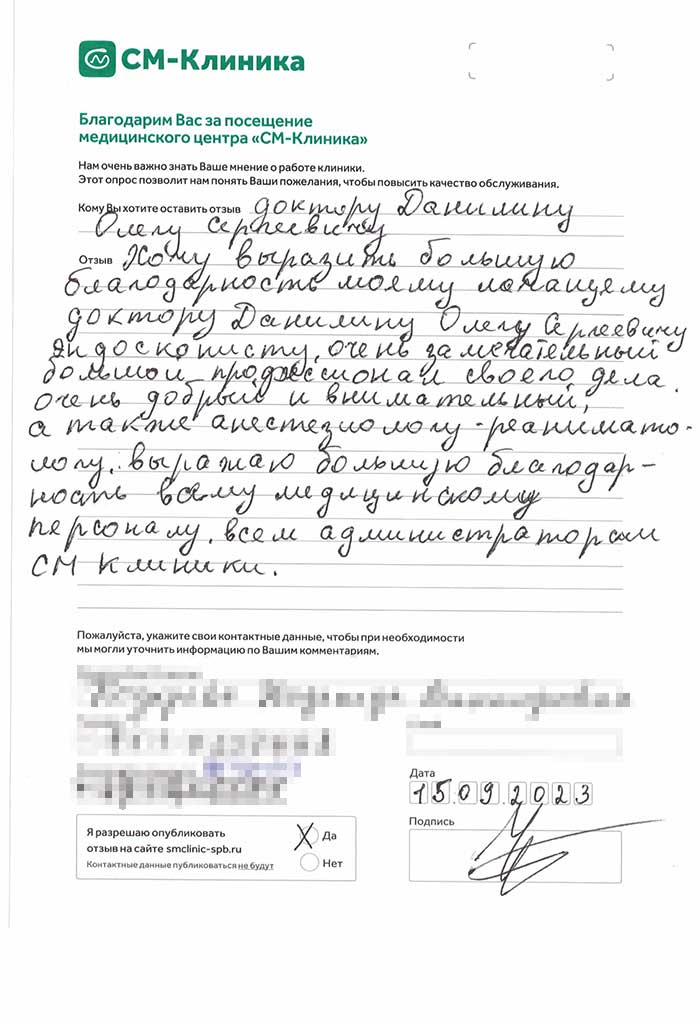 СМ-Клиника
Благодарим Вас за посещение
медицинского центра «СМ-Клиника»
Нам очень важно знать Ваше мнение о работе клиники.
Этот опрос позволит нам понять Ваши пожелания, чтобы повысить качество обслуживания.
Кому Вы хотите оставить отзыв доктору Данилину
Олегу Сергеевичу
Отзыв Хочу выразить большую
благодарность моему лечащему
доктору Данилину Олегу Сергеевичу
эндоскописту, очень замечательный
большой профессионал своего дела.
очень добрый и внимательный,
а также анестезиологу-реанимато-
логу, выражаю большую благодар-
ность всему медицинскому
персоналу, всем администраторам
СМ Клиники.
Пожалуйста, укажите свои контактные данные, чтобы при необходимости
мы могли уточнить информацию по Вашим комментариям.
Дата
15.09.2023
Подпись
Я разрешаю опубликовать
отзыв на сайте smclinic-spb.ru
Контактные данные публиковаться не будут
Да
Нет